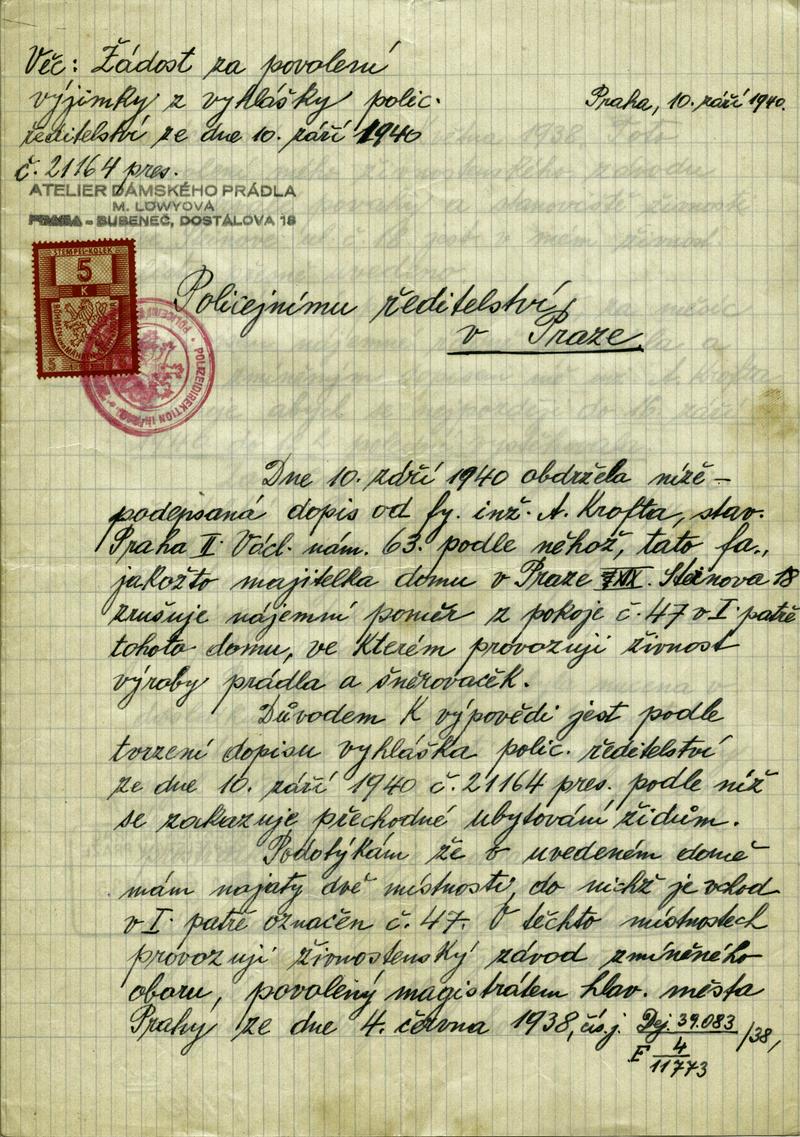 Věc: Žádost za povolení
výjimky z vyhlášky polic.
ředitelství ze dne 10. září 1940
č. 21164 pres.
Praha, 10. září 1940.
ATELIER DÁMSKÉHO PRÁDLA
M. LÖWYOVÁ
PRAHA - BUBENEČ, DOSTÁLOVA 18
STEMPEL-KOLEK
5
K
POLIZEIDIREKTION IN PRAG
Policejnímu ředitelství
v Praze
Dne 10. září 1940 obdržela níže-
podepsaná dopis od fy. inž. A. Krofta, stav.
Praha II. Václ. nám. 63. podle něhož, tato fa.,
jakožto majitelka domu v Praze XIX. Sternova 18
zrušuje nájemní poměr z pokoje č. 47 v I. patře
tohoto domu, ve kterém provozuji živnost
výroby prádla a šněrovaček.
Důvodem k výpovědi jest podle
tvrzení dopisu vyhláška polic. ředitelství
ze dne 10. září 1940 č. 21164 pres. podle níž
se zakazuje přechodné ubytování židům.
Podotýkám že v uvedeném domě
mám najaty dvě místnosti, do nichž je vchod
v I. patře označen č. 47. V těchto místnostech
provozuji živnostenský závod zmíněného
oboru, povolený magistrátem hlav. města
Prahy ze dne 4. června 1938, čís. j. Dej. 39.083
F 4 /38,
11773